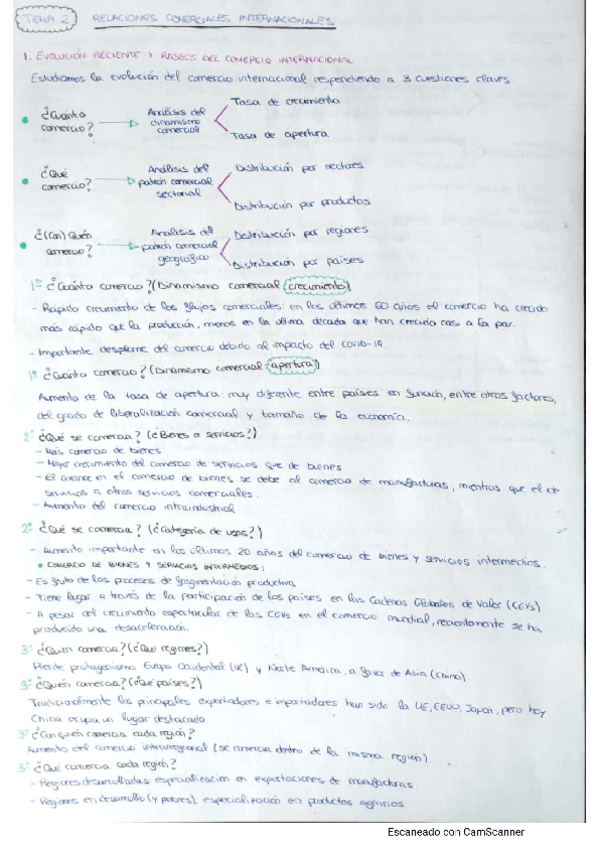 TEMA 2 RELACIONES COMERCIALES INTERNACIONALES
1. EVOLUCIÓN RECIENTE Y RASGOS DEL COMERCIO INTERNACIONAL
Estudiamos la evolución del comercio internacional respondiendo a 3 cuestiones claves:
¿Cuánto comercio? Análisis del dinamismo comercial
Tasa de crecimiento
Tasa de apertura
¿Qué comercio? Análisis del patrón comercial sectorial
Distribución por sectores
Distribución por productos
¿(Con) Quién comercio? Análisis del patrón comercial geográfico
Distribución por regiones
Distribución por países
1º ¿Cuánto comercio? (Dinamismo comercial (crecimiento))
- Rápido crecimiento de los flujos comerciales: en los últimos 60 años el comercio ha crecido
más rápido que la producción, menos en la última década que han crecido casi a la par.
- Importante desplome del comercio debido al impacto del covid-19.
1º ¿Cuánto comercio? (Dinamismo comercial (apertura))
Aumento de la tasa de apertura muy diferente entre países en función, entre otros factores,
del grado de liberalización comercial y tamaño de la economía.
2º ¿Qué se comercia? (¿Bienes o servicios?)
- Más comercio de bienes
- Mayor crecimiento del comercio de servicios que de bienes
- El avance en el comercio de bienes se debe al comercio de manufacturas, mientras que el de
servicios a otros servicios comerciales.
- Aumento del comercio intraindustrial
2º ¿Qué se comercia? (¿Categoría de usos?)
- Aumento importante en los últimos 20 años del comercio de bienes y servicios intermedios.
• COMERCIO DE BIENES Y SERVICIOS INTERMEDIOS:
- Es fruto de los procesos de fragmentación productiva
- Tiene lugar a través de la participación de los países en las Cadenas Globales de Valor (CGVs)
- A pesar del crecimiento espectacular de las CGVs en el comercio mundial, recientemente se ha
producido una desaceleración.
3º ¿Quién comercia? (¿Qué regiones?)
Pierde protagonismo Europa Occidental (UE) y Norte América, a favor de Asia (China).
3º ¿Quién comercia? (¿Qué países?)
Tradicionalmente los principales exportadores e importadores han sido la UE, EEUU, Japón, pero hoy
China ocupa un lugar destacado.
3º ¿Con quién comercia cada región?
Aumento del comercio intrarregional (se comercia dentro de la misma región).
3º ¿Qué comercia cada región?
- Regiones desarrolladas: especialización en exportaciones de manufacturas.
- Regiones en desarrollo (y pobres): especialización en productos agrarios.
Escaneado con CamScanner